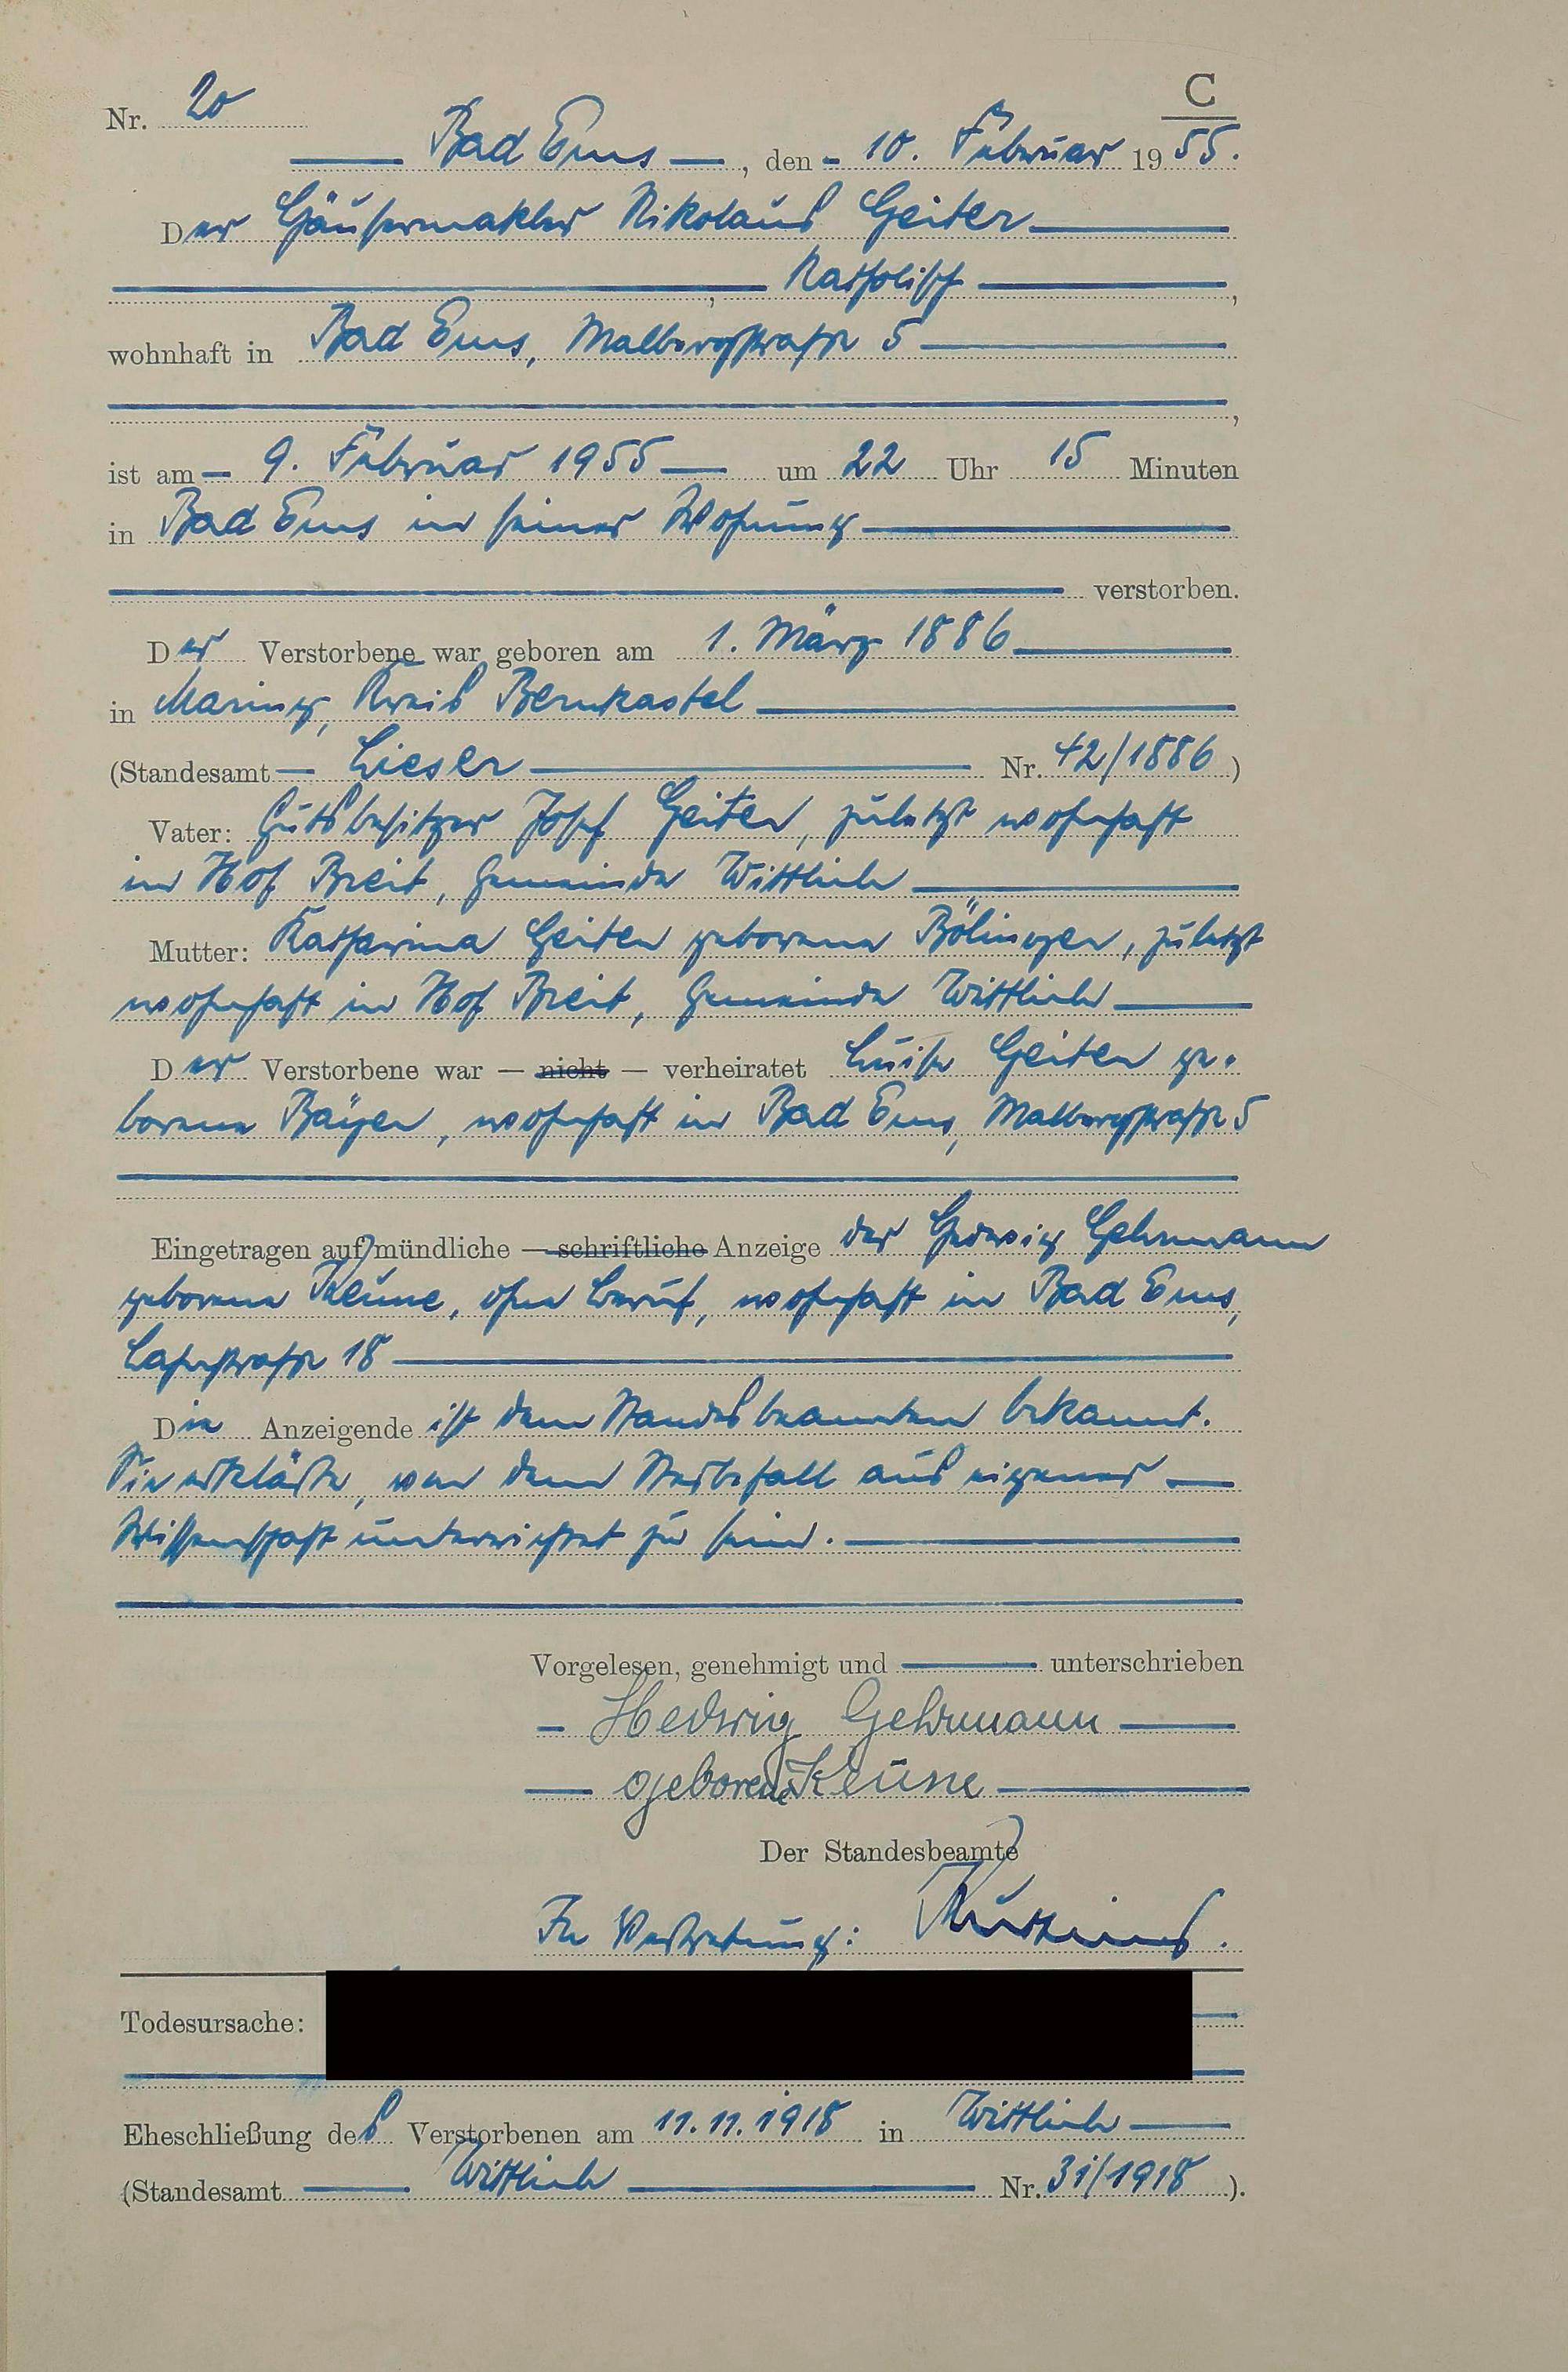 C
Nr. 20
Bad Ems, den 10. Februar 1955.
Der Häusermakler Nikolaus Geiter
, katholisch,
wohnhaft in Bad Ems, Malbergstraße 5
,
ist am 9. Februar 1955 um 22 Uhr 15 Minuten
in Bad Ems in seiner Wohnung
verstorben.
Der Verstorbene war geboren am 1. März 1886
in Maring, Kreis Bernkastel
(Standesamt Lieser Nr. 42/1886)
Vater: Gutsbesitzer Josef Geiter, zuletzt wohnhaft
in Hof Breit, Gemeinde Wittlich
Mutter: Katharina Geiter geborene Bölinger, zuletzt
wohnhaft in Hof Breit, Gemeinde Wittlich
Der Verstorbene war — nicht — verheiratet Luise Geiter ge-
borene Bayer, wohnhaft in Bad Ems, Malbergstraße 5
Eingetragen auf mündliche — schriftliche Anzeige der Hedwig Gehrmann
geborene Keune, ohne Beruf, wohnhaft in Bad Ems,
Lahnstraße 18
Die Anzeigende ist dem Standesbeamten bekannt.
Sie erklärte, von dem Sterbefall aus eigener
Wissenschaft unterrichtet zu sein.
Vorgelesen, genehmigt und unterschrieben
Hedwig Gehrmann
geborene Keune
Der Standesbeamte
In Vertretung:
Todesursache:
Eheschließung des Verstorbenen am 11.11.1918 in Wittlich
(Standesamt Wittlich Nr. 31/1918).